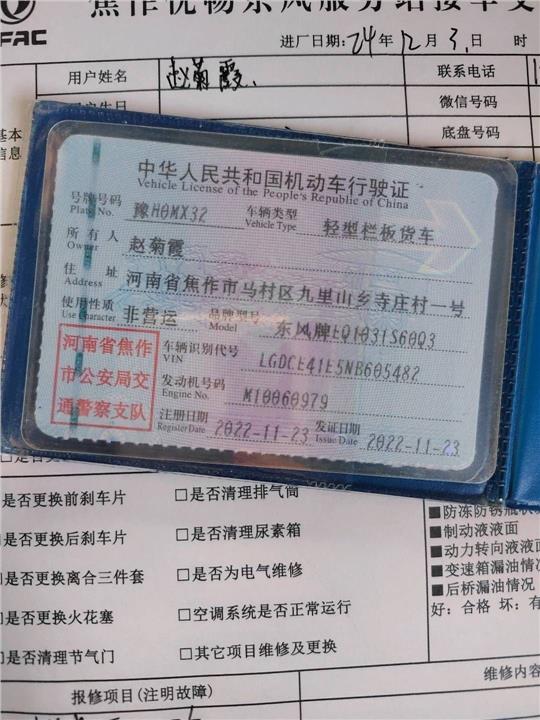 焦作优畅东风服务站接车交
FAC
进厂日期:24年12月3日 时
用户姓名 赵菊霞 联系电话
微信号码
基本 底盘号码
信息
中华人民共和国机动车行驶证
Vehicle License of the People's Republic of China
号牌号码 豫H0MX32 车辆类型 轻型栏板货车
Plate No. Vehicle Type
所有人 赵菊霞
Owner
住址 河南省焦作市马村区九里山乡寺庄村一号
Address
使用性质 非营运 品牌型号 东风牌EQ1031S60Q3
Use Character Model
河南省焦作
市公安局交
通警察支队
车辆识别代号 LGDCE41E5NB605482
VIN
发动机号码 M10060979
Engine No.
注册日期 2022-11-23 发证日期 2022-11-23
Register Date Issue Date
□是否更换前刹车片 □是否清理排气筒
□是否更换后刹车片 □是否清理尿素箱
□是否更换离合三件套 □是否为电气维修
□是否更换火花塞 □空调系统是否正常运行
□是否清理节气门 □其它项目维修及更换
■防冻防锈
■制动液液面
■动力转向液液面
■变速箱漏油情况
■后桥漏油情况
好:合格 坏:有
报修项目(注明故障) 维修内容